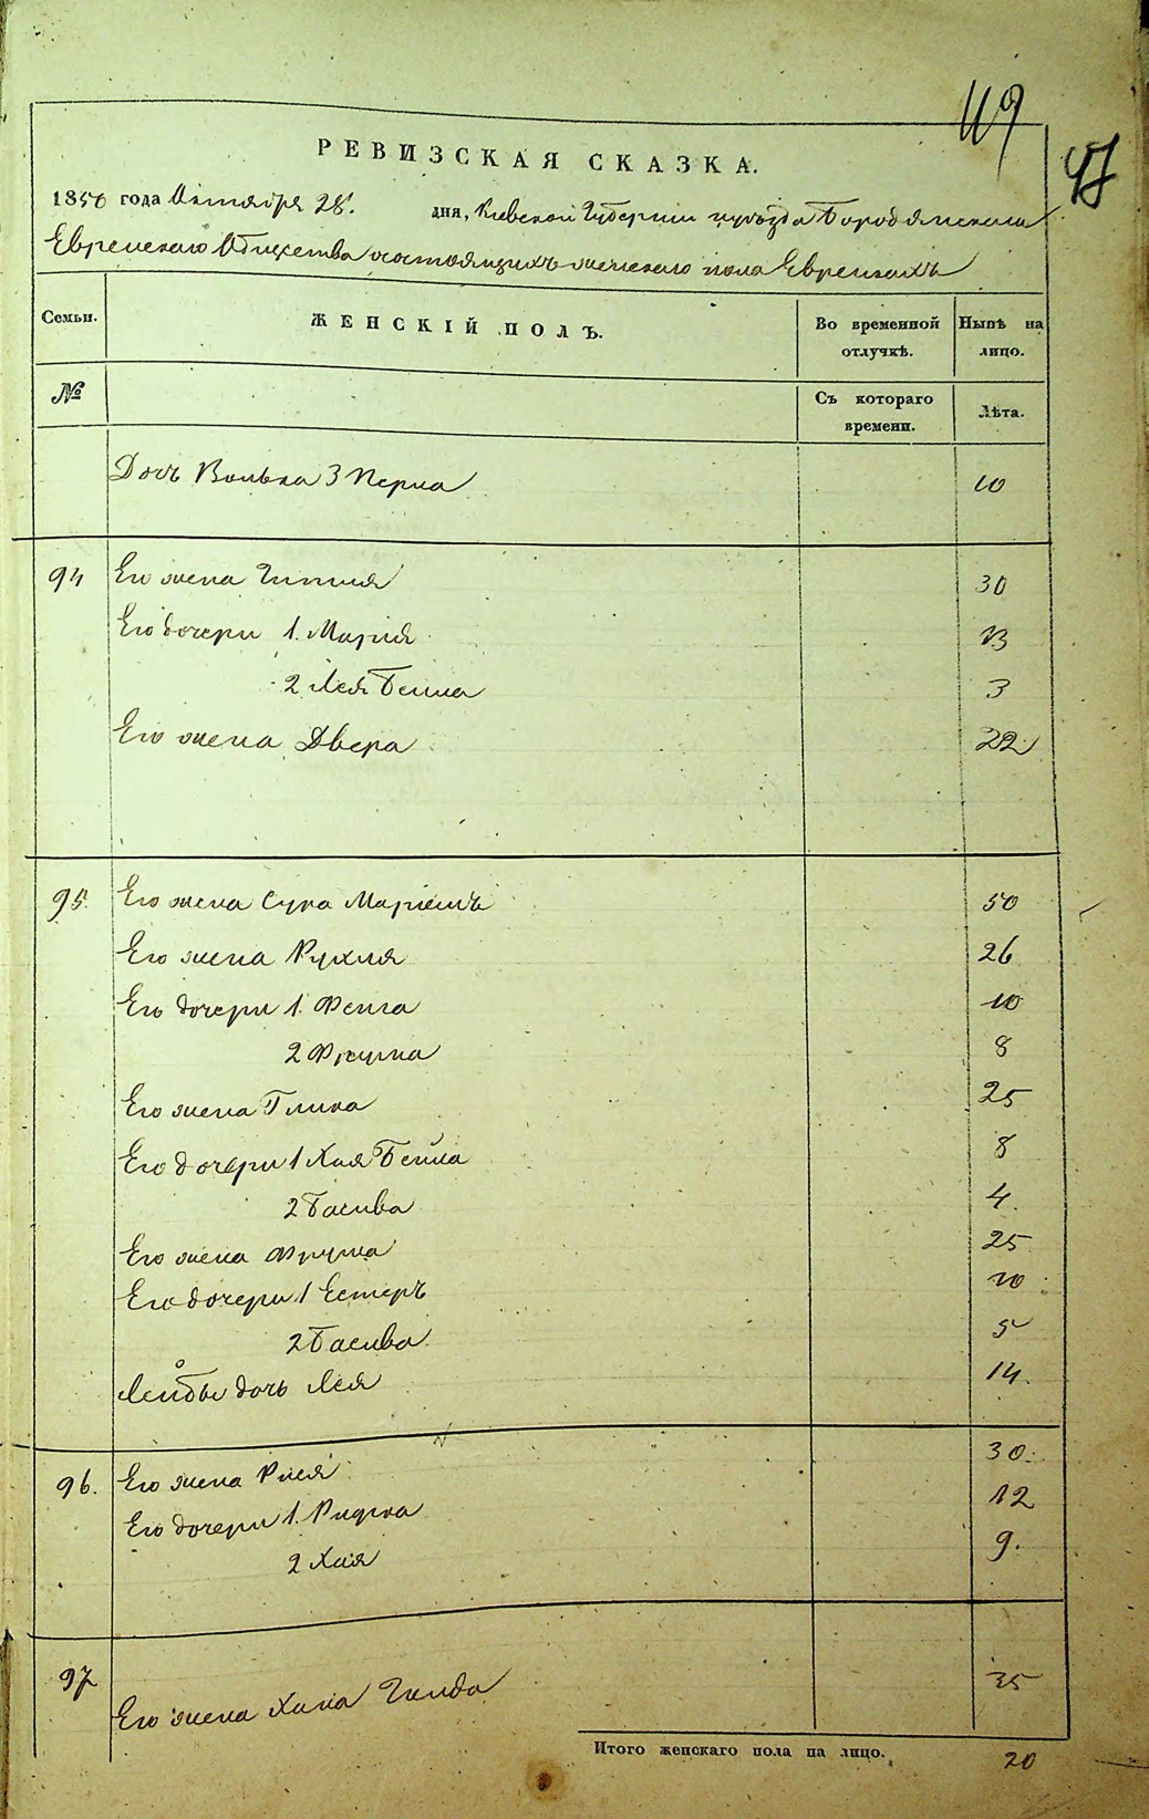 119
47
РЕВИЗСКАЯ СКАЗКА.
1850 года Октября 28. дня, Киевской Губернии и уѣзда Бородянскаго
Еврейскаго Общества состоящихъ женскаго пола Евреикахъ
Семьи. ЖЕНСКІЙ ПОЛЪ. Во временной отлучкѣ. Нынѣ на лицо.
№ Съ котораго времени. Лѣта.
Дочь Волька 3 Перла 10
94 Его жена Гитля 30
Его дочери 1. Марія 13
2 Лея Бейла 3
Его жена Двера 22
95. Его жена Сура Маріемъ 50
Его жена Рухля 26
Его дочери 1. Фейга 10
2 Фрума 8
Его жена Глика 25
Его дочери 1 Хая Бейла 8
2 Басива 4.
Его жена Фрума 25
Его дочери 1 Естеръ 10
2 Басива 5
Лейбы дочь Лея 14.
96. Его жена Рися 30.
Его дочери 1. Рифка 12
2 Хая 9.
97 Его жена Хана Гинда 35
Итого женскаго пола на лицо. 20